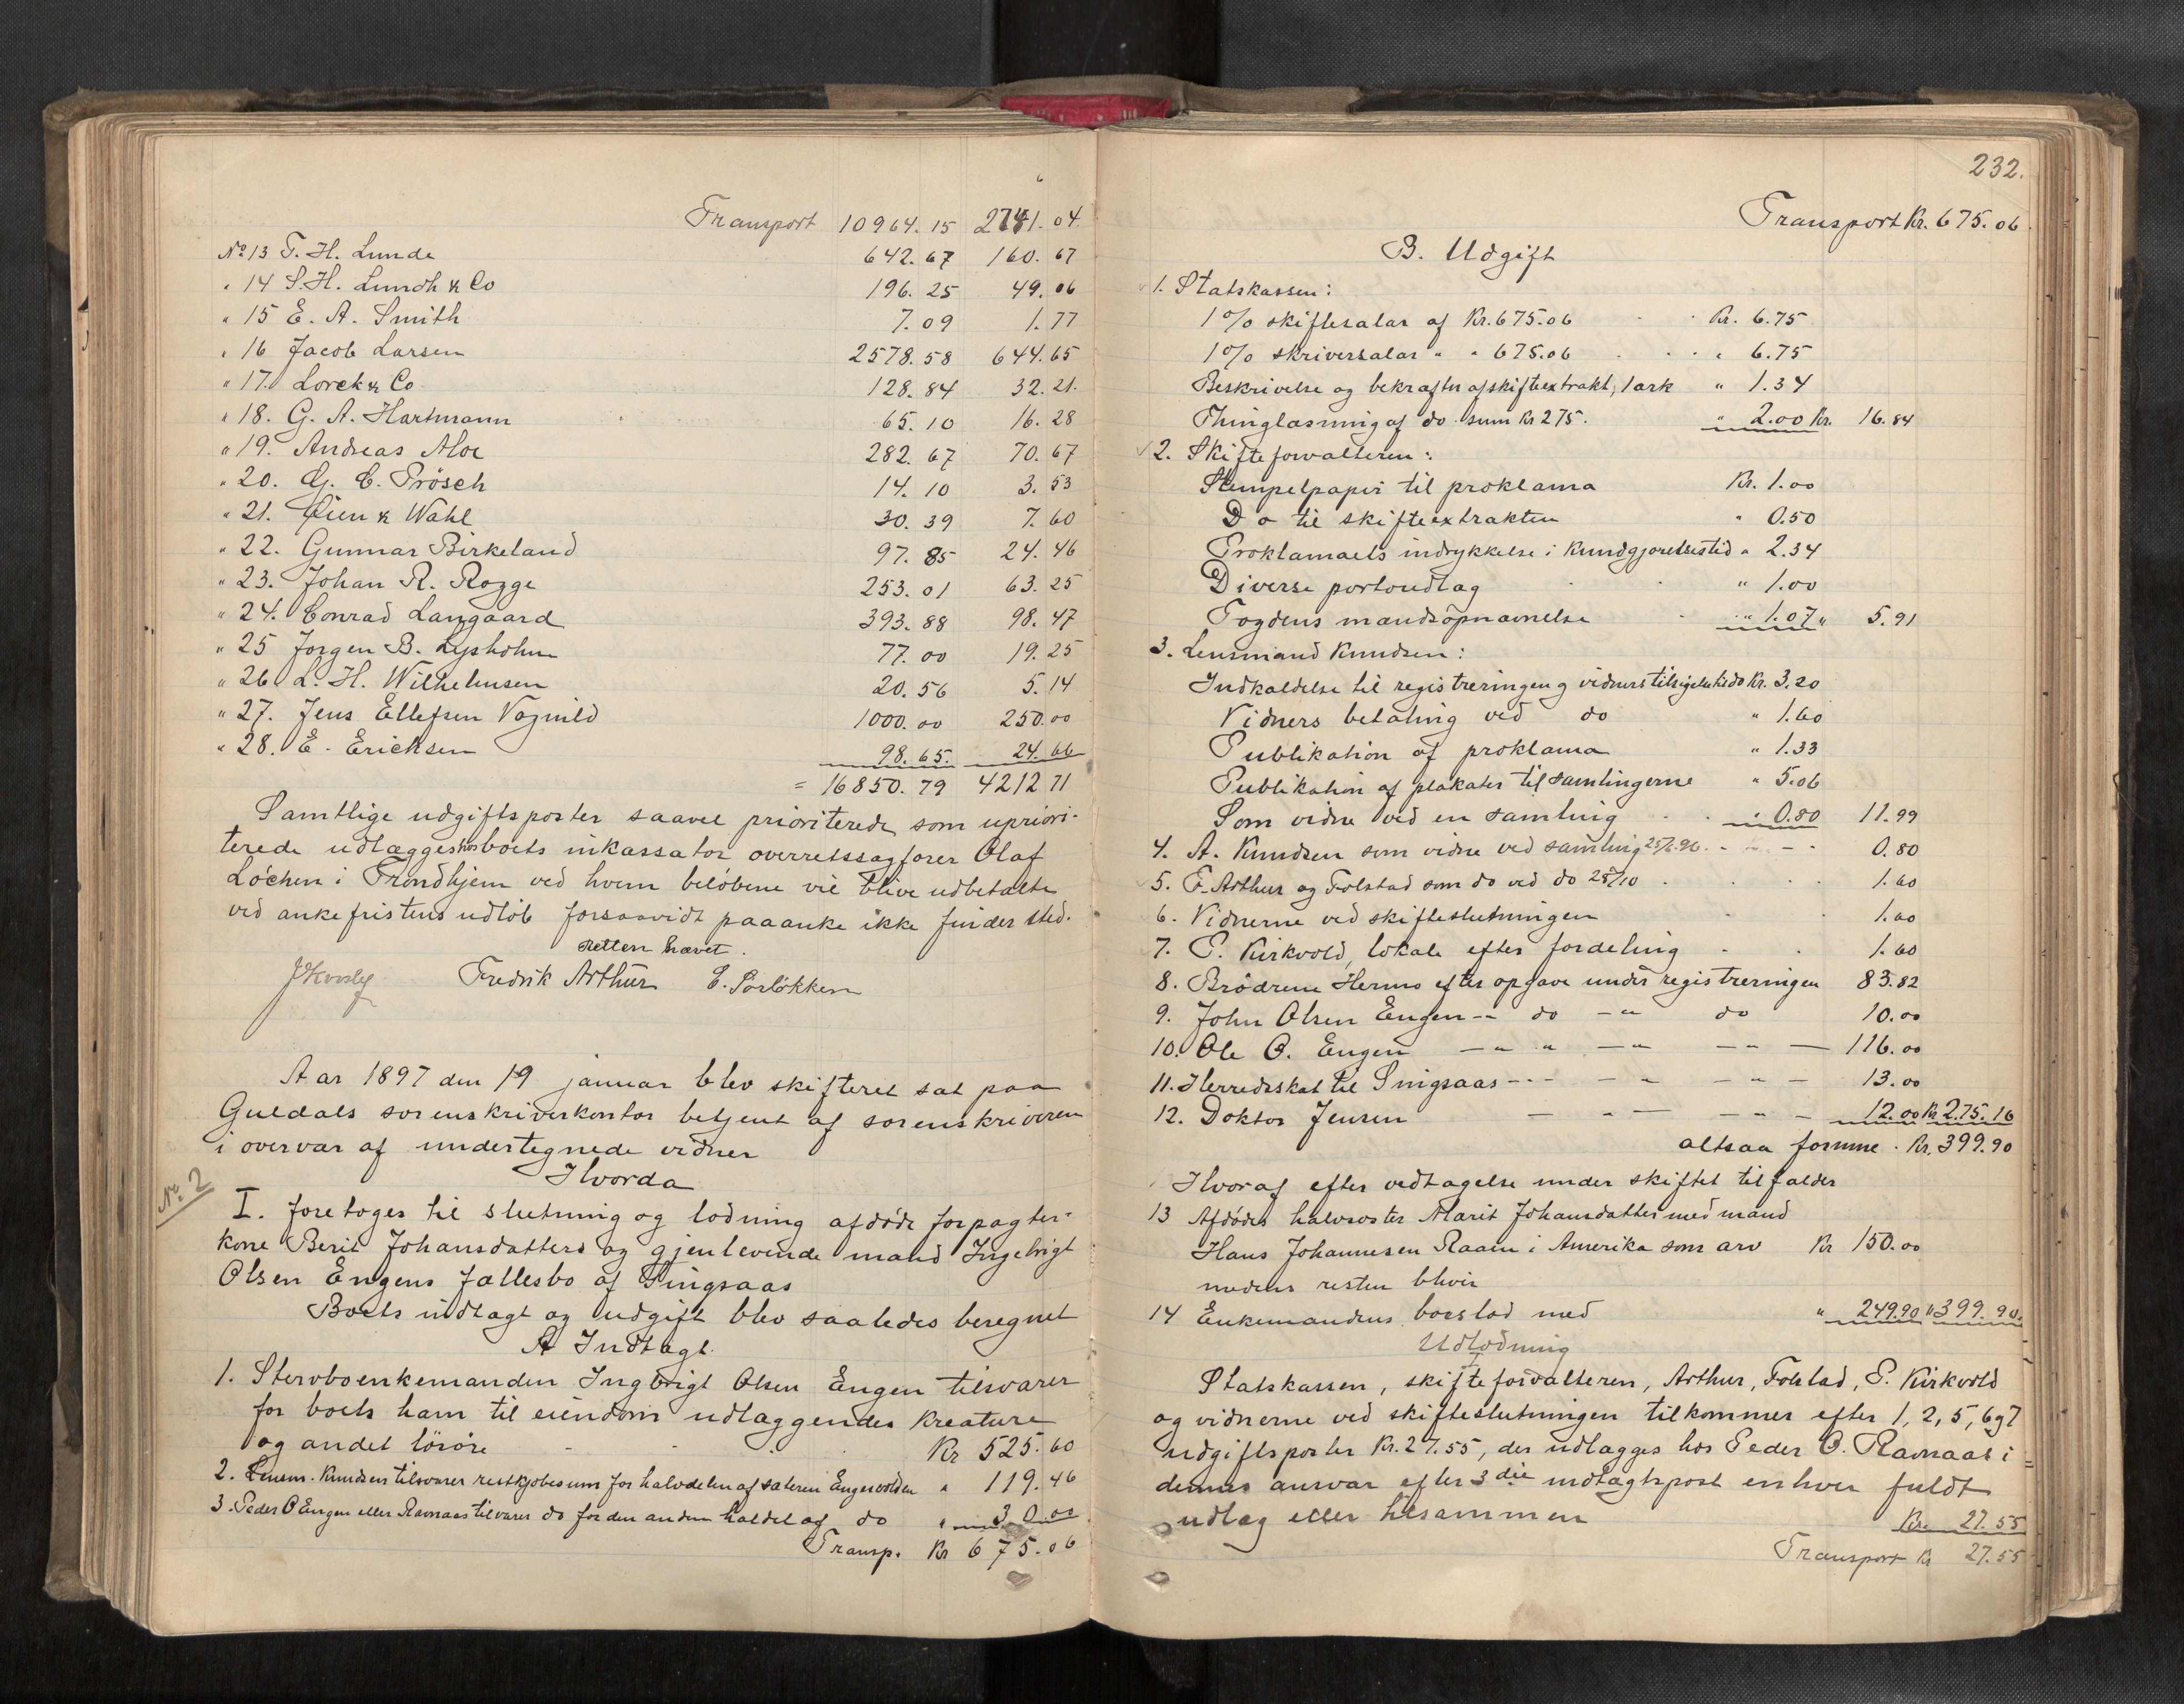 Transport 10964.15 2741.04.
No 13 T. H. Lunde 642.67 160.67
" 14 S. H. Lundh & Co 196.25 49.06
" 15 E. A. Smith 7.09 1.77
" 16 Jacob Larsen 2578.58 644.65
" 17. Lorck & Co 128.84 32.21.
" 18. G. A. Hartmann 65.10 16.28
" 19. Andreas Moe 282.67 70.67
" 20. G. C. Frösch 14.10 3.53
" 21. Øien & Wahl 30.39 7.60
" 22. Gunnar Birkeland 97.85 24.46
" 23. Johan R. Rogge 253.01 63.25
" 24. Conrad Langaard 393.88 98.47
" 25 Jørgen B. Lysholm 77.00 19.25
" 26 L. H. Wilhelmsen 20.56 5.14
" 27. Jens Ellefsen Vognild 1000.00 250.00
" 28. E. Ericksen 98.65. 24.66
= 16850.79 4212 71
Samtlige udgiftsposter saavel prioriterede som upriori-
terede udlægges hos boets inkassator overretssagfører Olaf
Löchen i Trondhjem ved hvem beløbene vil blive udbetalte
ved ankefristens udløb forsaavidt paaanke ikke finder sted.
Retten hævet.
Fredrik Arthur E. Porløkken
Aar 1897 den 19 januar blev skifteret sat paa
Guldals sorenskriverkontor betjent af sorenskriveren
i overvær af undertegnede vidner
Hvorda
No 2
I. foretoges til slutning og lodning afdøde forpagter-
kone Berit Johansdatters og gjenlevende mand Ingebrigt
Olsen Engens fællesbo af Singsaas
Boets indtægt og udgift blev saaledes beregnet
A Indtægt.
1. Stervboenkemanden Ingbrigt Olsen Engen tilsvarer
for boets ham til eiendom udlæggendes kreature
og andet løsøre Kr 525.60
2. Lensm. Knudsen tilsvarer restkjøbesum for halvdelen af sæteren Engesvolden " 119.46
3. Peder O Engen eller Ramaas tilsvarer do for den anden haldel af do " 30.00
Transp. Kr 675.06
232.
Transport Kr. 675.06
B. Udgift
1. Statskassen:
1% skiftesalær af Kr. 675.06 Kr. 6.75
1% skriversalær " " 675.06 " 6.75
Beskrivelse og bekræftn af skifteextrakt, 1 ark " 1.34
Thinglæsning af do sum Kr 275. " 2.00 Kr. 16.84
2. Skifteforvalteren:
Stempelpapir til proklama Kr. 1.00
Do til skifteextrakten " 0.50
Proklamaets indrykkelse i Kundgjørelsestid " 2.34
Diverse portoudlæg " 1.00
Fogdens mandsopnævnelse " 1.07 " 5.91
3. Lensmand Knudsen:
Indkaldelse til registreringen og vidners tilsigelse til do Kr. 3.20
Vidners betaling ved do " 1.60
Publikation af proklama " 1.33
Publikation af plakater til samlingerne " 5.06
Som vidne ved en samling " 0.80 11.99
4. A. Knudsen som vidne ved samling 25/2.96 - " - 0.80
5. F. Arthur og Folstad som do ved do 25/10 1.60
6. Vidnerne ved skifteslutningen 1.60
7. P. Kirkvold, lokale efter fordeling 1.60
8. Brødrene Hermo efter opgave under registreringen 83.82
9. John Olsen Engen -" do -" do 10.00
10. Ole O. Engen - " " - " - " - 116.00
11. Herredsskat til Singsaas - " - - " - " - 13.00
12. Doktor Jensen - " - - " - 12.00 Kr 275.16
altsaa formue Kr. 399.90
Hvoraf efter vedtagelse under skiftet tilfalder
13 Afdødes halvsøster Marit Johansdatter med mand
Hans Johannesen Raaen i Amerika som arv Kr 150.00
medens resten bliver
14 Enkemandens boeslod med " 249.90 " 399.90.
Udlodning
I
Statskassen, skifteforvalteren, Arthur, Folstad, P. Kirkvold
og vidnerne ved skifteslutningen tilkommer efter 1, 2, 5, 6 og 7
udgiftsposter Kr. 27.55, der udlægges hos Peder O. Ramaas i
dennes ansvar efter 3die indtægtspost enhver fuldt
udlæg eller tilsammen Kr. 27.55
Transport Kr 27.55